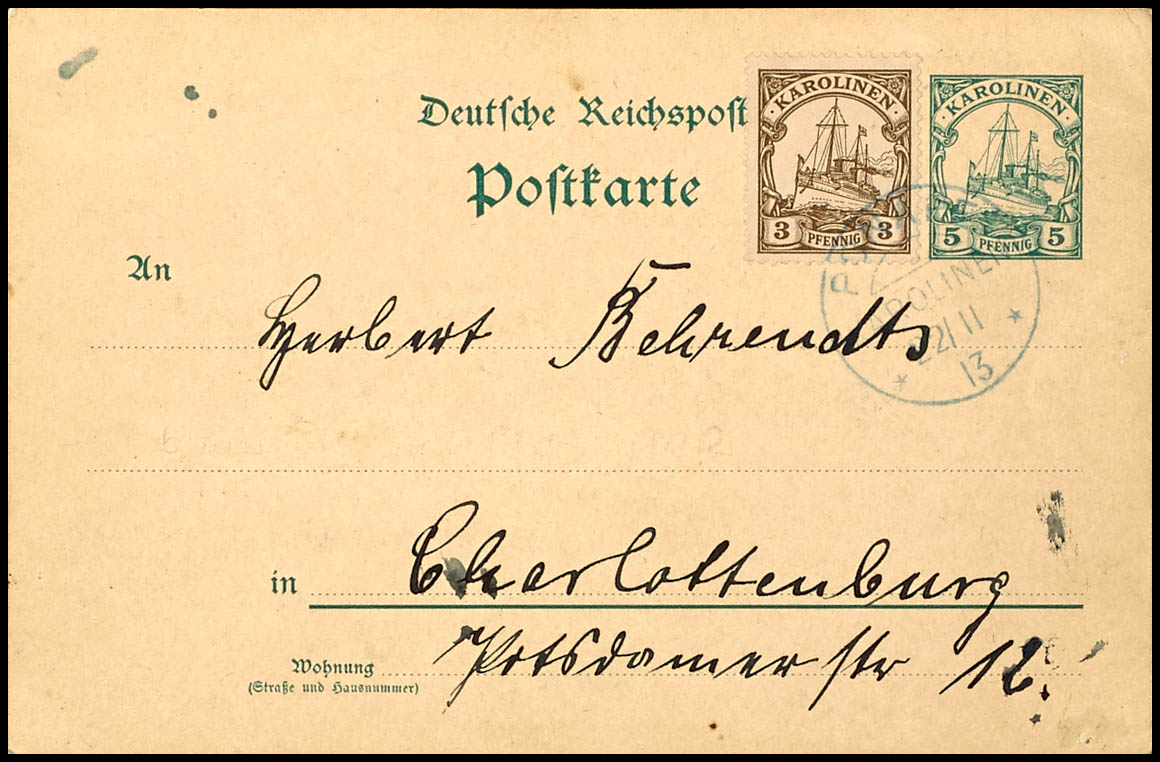 Deutsche Reichspost
Postkarte
KAROLINEN
3 PFENNIG 3
KAROLINEN
5 PFENNIG 5
KAROLINEN
21 11
13
An
Herbert Behrendts
in Charlottenburg
Wohnung
(Straße und Hausnummer)
Potsdamer str 12.